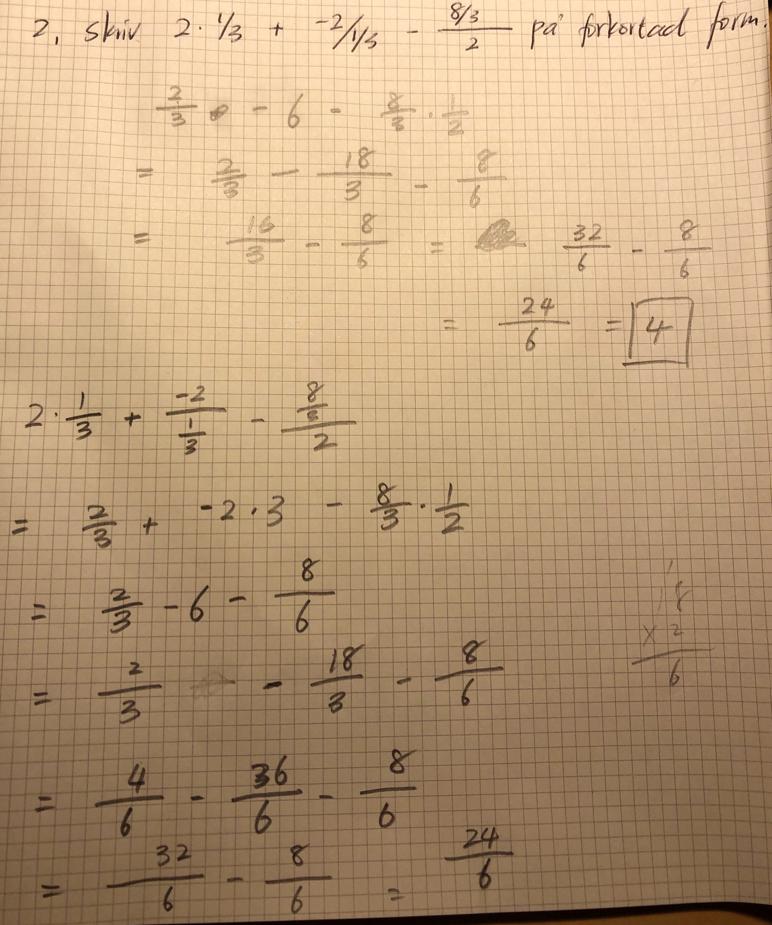 2. skriv 2 · 1/3 + -2/1/3 - 8/3/2 på förkortad form.
2/3 - 6 - 8/3 · 1/2
= 2/3 - 18/3 - 8/6
= 16/3 - 8/6 = 32/6 - 8/6
= 24/6 = 4
2 · 1/3 + -2/1/3 - 8/3/2
= 2/3 + -2 · 3 - 8/3 · 1/2
= 2/3 - 6 - 8/6
= 2/3 - 18/3 - 8/6
= 4/6 - 36/6 - 8/6
= 32/6 - 8/6 = 24/6
1
18
x 2
6